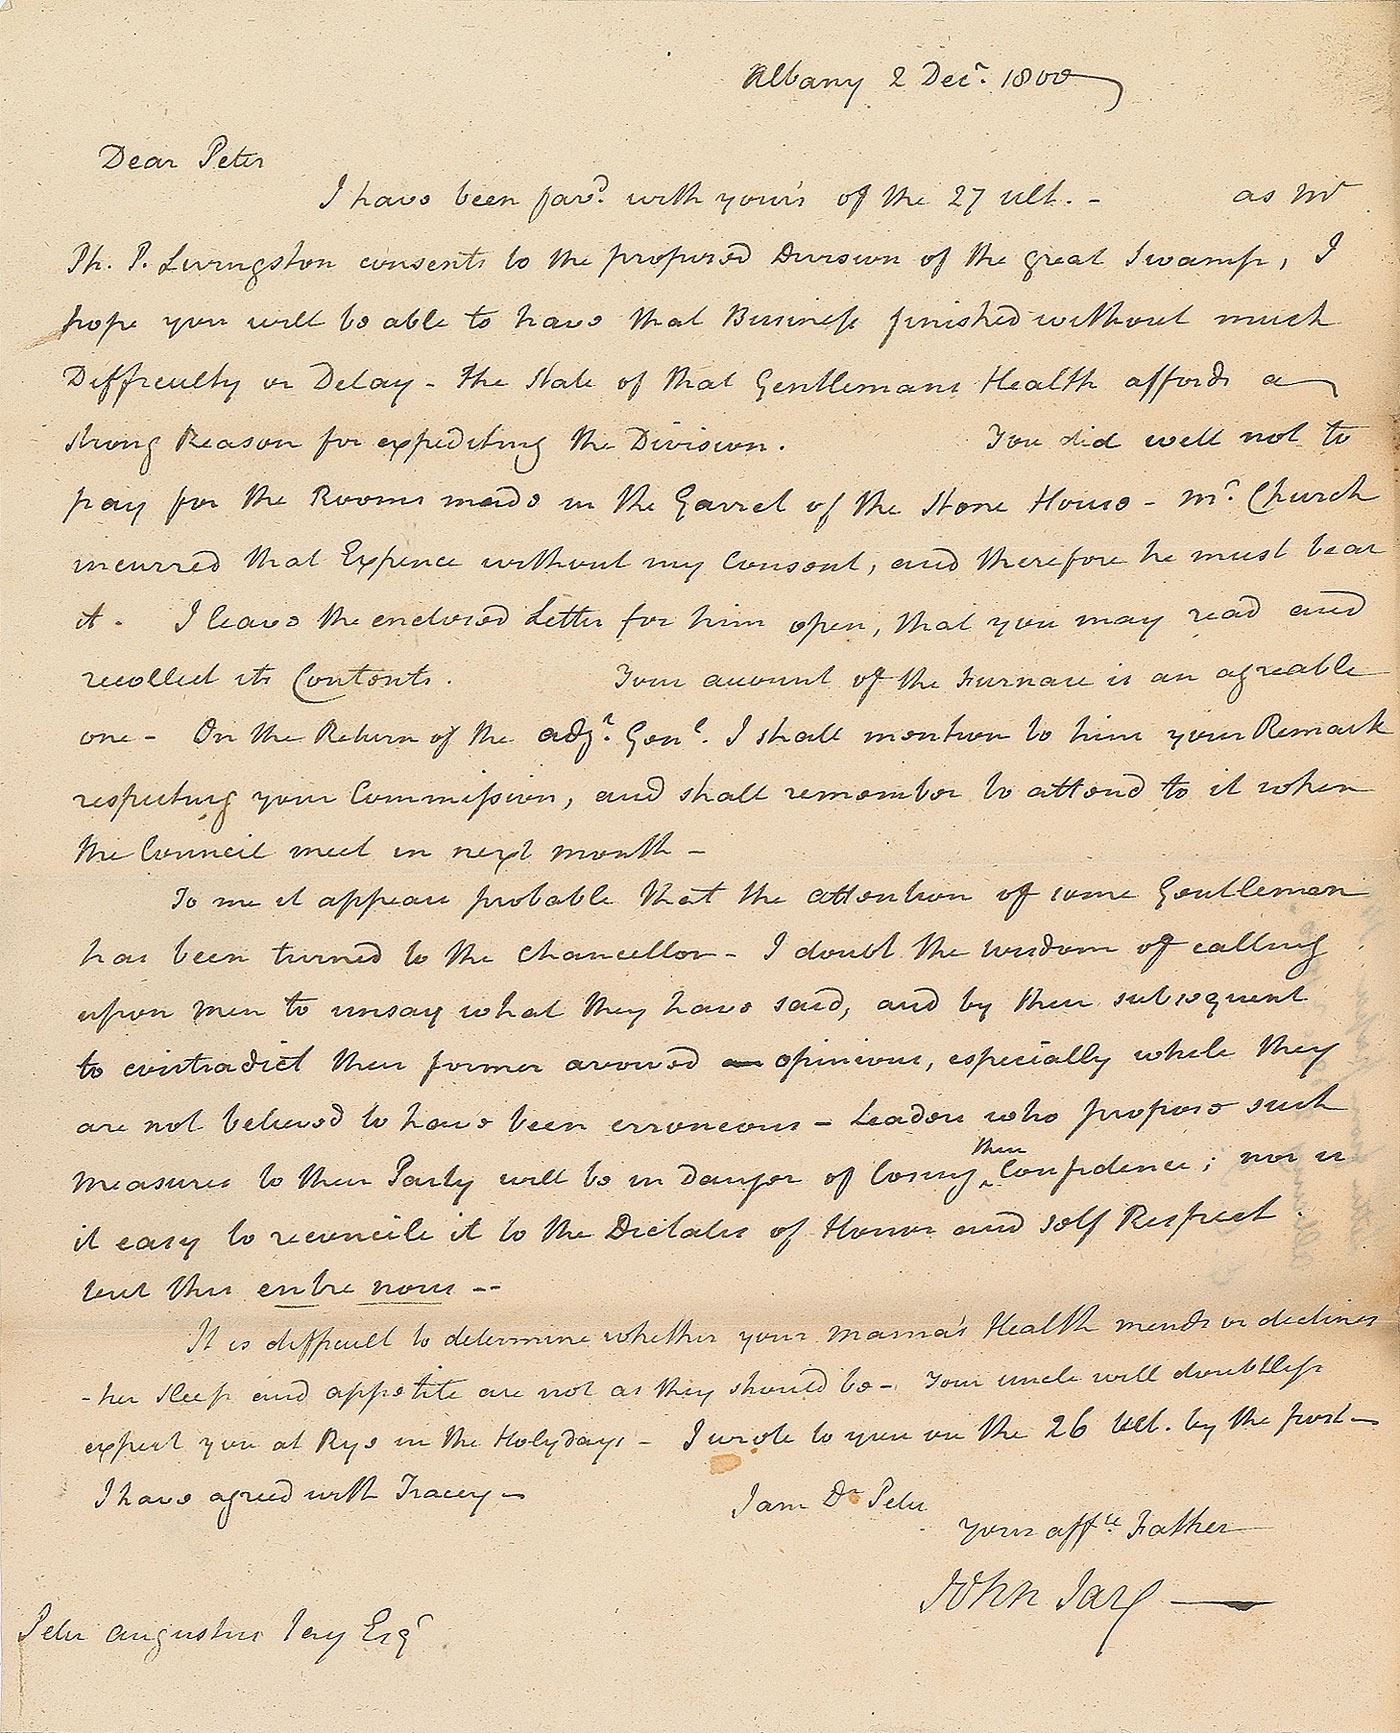 Albany 2 Decr. 1800
Dear Peter
I have been favd. with yours of the 27 ult. - as Mr
Ph. P. Livingston consents to the proposed Division of the great Swamp, I
hope you will be able to have that Business finished without much
Difficulty or Delay - the State of that Gentlemans Health affords a
strong Reason for expediting the Division. You did well not to
pay for the Rooms made in the Garret of the Stone House - Mr. Church
incurred that Expence without my Consent, and therefore he must bear
it. I leave the enclosed Letter for him open, that you may read and
recollect its Contents. Your account of the Furnace is an agreable
one - On the Return of the adjr. Genl. I shall mention to him your Remark
respecting your Commission, and shall remember to attend to it when
the Council meet in next month -
To me it appears probable that the attention of some Gentlemen
has been turned to the Chancellor - I doubt the wisdom of calling
upon men to unsay what they have said, and by their subsequent
to contradict their former avowed opinions, especially while they
are not believed to have been erroneous - Leaders who propose such
measures to their Party will be in Danger of losing their Confidence; nor is
it easy to reconcile it to the Dictates of Honor and self Respect.
but this entre nous --
It is difficult to determine whether your mama's Health mends or declines
- her sleep and appetite are not as they should be - Your uncle will doubtless
expect you at Rye in the Holydays - I wrote to you on the 26 ult. by the post -
I have agreed with Tracey -
I am Dr Peter
your affte. Father
John Jay
Peter Augustus Jay Esqr